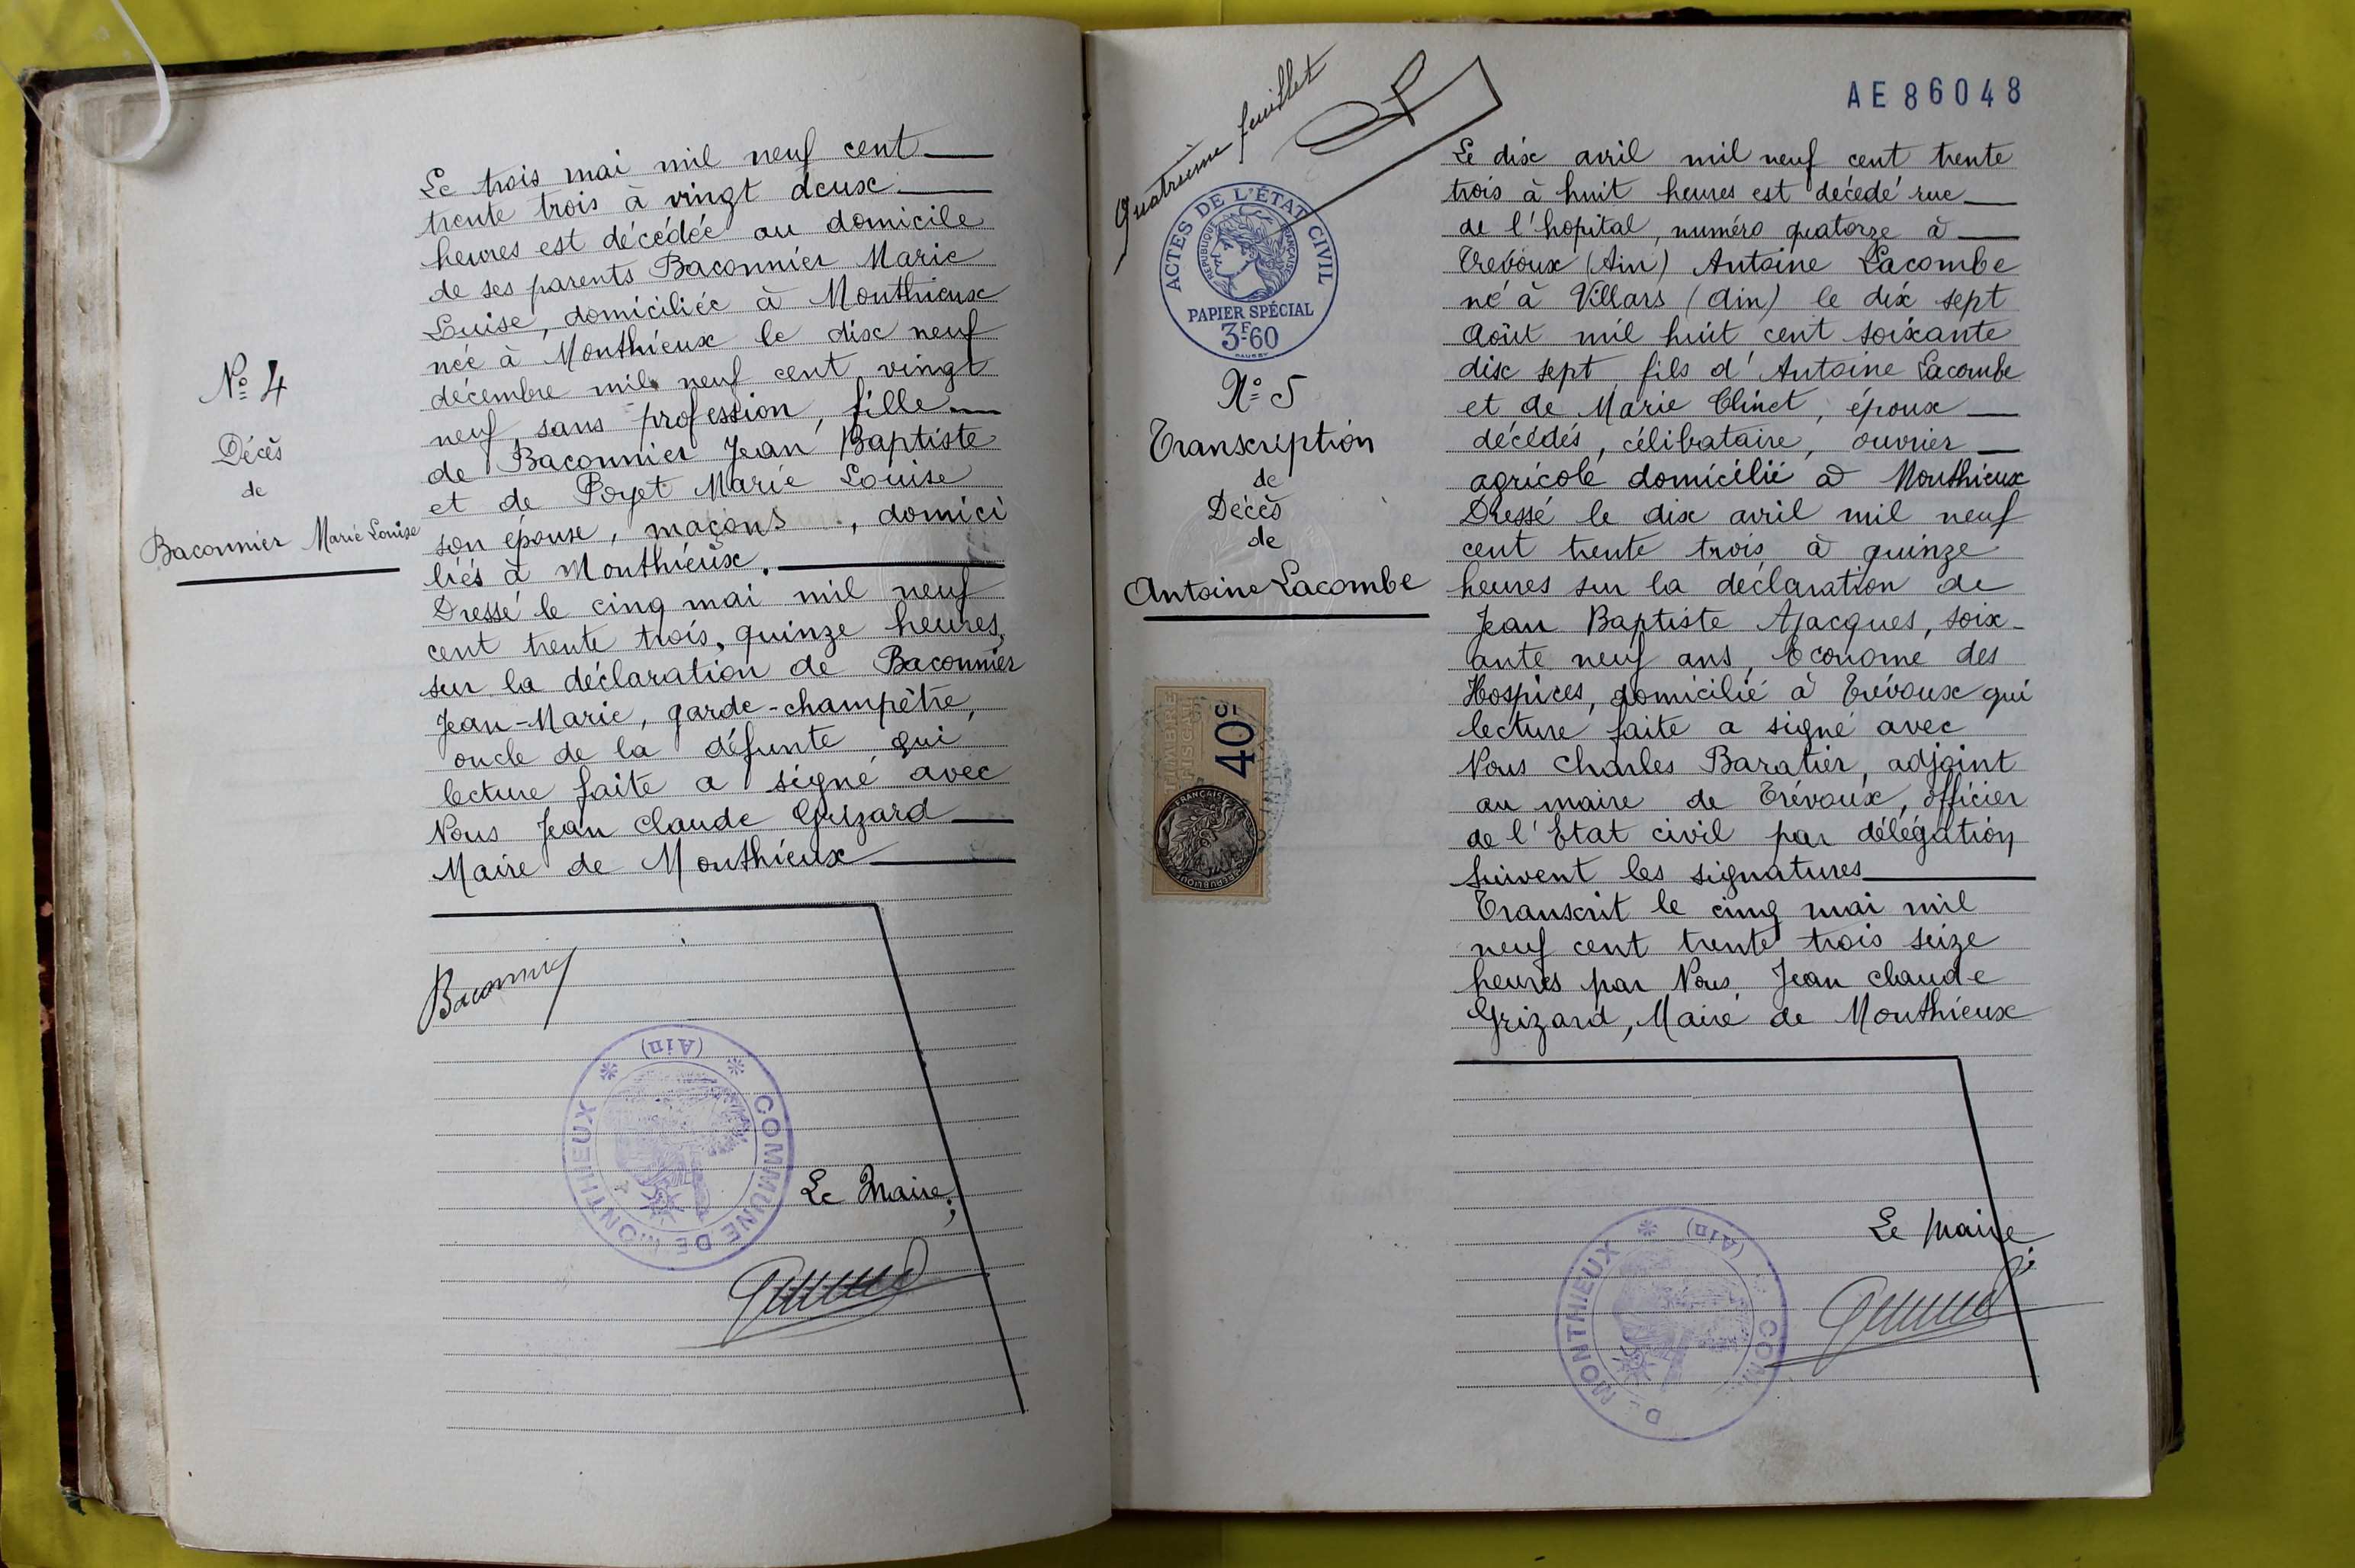 N° 4
Décès
de
Baconnier Marie Louise
Le trois mai mil neuf cent
trente trois à vingt deux
heures est décédée au domicile
de ses parents Baconnier Marie
Louise, domiciliée à Monthieux
née à Monthieux le dix neuf
décembre mil neuf cent vingt
neuf, sans profession, fille
de Baconnier Jean Baptiste
et de Poyet Marie Louise
son épouse, maçons, domici
liés à Monthieux.
Dressé le cinq mai mil neuf
cent trente trois, quinze heures,
sur la déclaration de Baconnier
Jean-Marie, garde-champêtre,
oncle de la défunte qui
lecture faite a signé avec
Nous Jean Claude Grizard
Maire de Monthieux
Baconnier
COMMUNE DE MONTHIEUX
(Ain)
Le Maire,
Quatrième feuillet
AE 86048
ACTES DE L'ÉTAT CIVIL
RÉPUBLIQUE FRANÇAISE
PAPIER SPÉCIAL
3F60
N° 5
Transcription
de
Décès
de
Antoine Lacombe
TIMBRE
FISCAL
40c
Le dix avril mil neuf cent trente
trois à huit heures est décédé rue
de l'hopital, numéro quatorze à
Trévoux (Ain) Antoine Lacombe
né à Villars (Ain) le dix sept
Août mil huit cent soixante
dix sept, fils d'Antoine Lacombe
et de Marie Clinet, époux
décédés, célibataire, ouvrier
agricole domicilié à Monthieux
Dressé le dix avril mil neuf
cent trente trois à quinze
heures sur la déclaration de
Jean Baptiste Ajacques, soix-
ante neuf ans, Econome des
Hospices, domicilié à Trévoux qui
lecture faite a signé avec
Nous Charles Baratier, adjoint
au maire de Trévoux, officier
de l'Etat civil par délégation
Suivent les signatures
Transcrit le cinq mai mil
neuf cent trente trois seize
heures par Nous, Jean Claude
Grizard, Maire de Monthieux
Le Maire,
DE MONTHIEUX
(Ain)